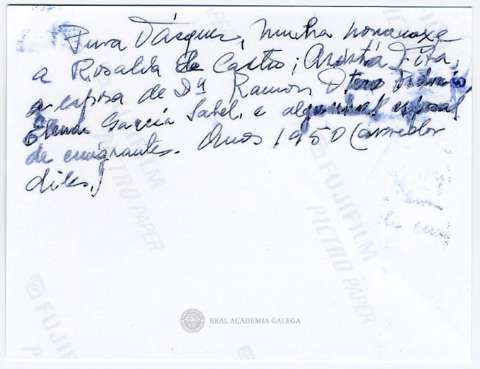 Pura Vázquez, nunha homenaxe
a Rosalía de Castro; Maruxa Fita,
a esposa de Dn Ramon Otero Pedraio,
Elena García Sabel, e algunhas esposas
de emigrantes. Anos 1950 (arredor
diles.)
FUJIFILM
PICTRO PAPER
FUJIFILM
PICTRO PAPER
FUJIFILM
REAL ACADEMIA GALEGA